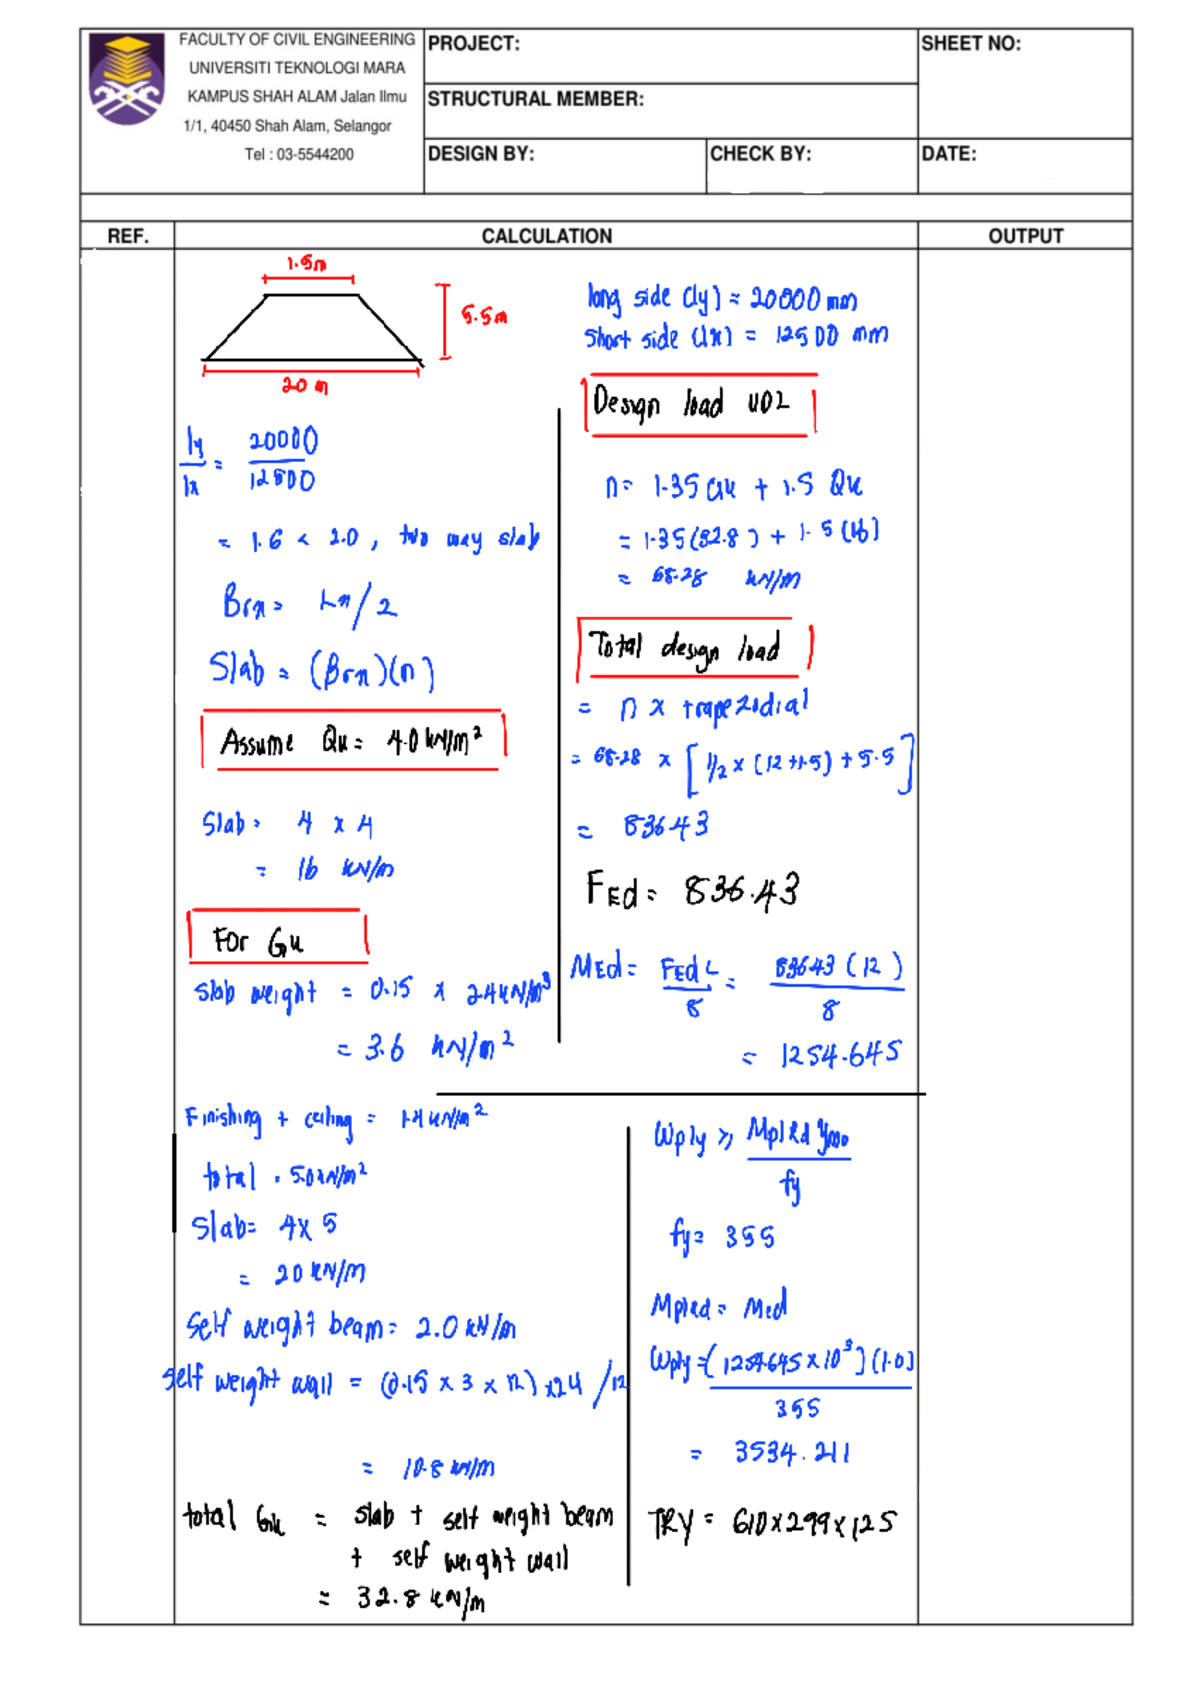 FACULTY OF CIVIL ENGINEERING
UNIVERSITI TEKNOLOGI MARA
KAMPUS SHAH ALAM Jalan Ilmu
1/1, 40450 Shah Alam, Selangor
Tel : 03-5544200
PROJECT:
SHEET NO:
STRUCTURAL MEMBER:
DESIGN BY:
CHECK BY:
DATE:
REF.
CALCULATION
OUTPUT
1.5m
5.5m
20 m
ly/lx = 20000/12500
= 1.6 < 2.0, two way slab
Brx = Lx/2
Slab = (Brx)(n)
Assume Qk = 4.0 kN/m²
Slab = 4 x 4
= 16 kN/m
For Gk
Slab weight = 0.15 x 24 kN/m³
= 3.6 kN/m²
Finishing + ceiling = 1.4 kN/m²
total = 5.0 kN/m²
Slab = 4 x 5
= 20 kN/m
Self weight beam = 2.0 kN/m
self weight wall = (0.15 x 3 x 12) x 24 /12
= 10.8 kN/m
total Gk = slab + self weight beam
+ self weight wall
= 32.8 kN/m
long side (ly) = 20000 mm
Short side (lx) = 12500 mm
Design load UDL
n = 1.35 Gk + 1.5 Qk
= 1.35(32.8) + 1.5(16)
= 68.28 kN/m
Total design load
= n x trapezoidial
= 68.28 x [1/2 x (12+1.5) + 5.5]
= 836.43
FEd = 836.43
MEd = FEd L/8 = 836.43 (12)/8
= 1254.645
Wply ≥ Mpl Rd γmo/fy
fy = 355
Mplrd = Med
Wply = (1254.645 x 10³)(1.0)/355
= 3534.211
TRY = 610 x 299 x 125